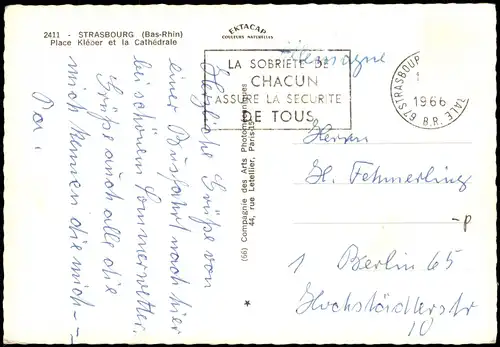 2411 - STRASBOURG (Bas-Rhin)
Place Kléber et la Cathédrale
EKTACAP
COULEURS NATURELLES
Allemagne
LA SOBRIÉTÉ DE
CHACUN
ASSURE LA SÉCURITÉ
DE TOUS
67 STRASBOURG
1966
B.R.
Herzliche Grüße von
einer Busfahrt nach hier
bei schönem Sommerwetter.
Grüße auch alle die
mich kennen die mich -
(66) Compagnie des Arts Photomécaniques
44, rue Letellier, Paris-15
*
Herrn
H. Fehmerling
-p
1 Berlin 65
Hochstädterstr
10